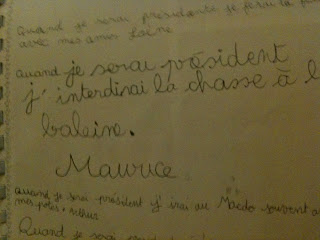 Quand je serai présidente je ferai la
avec mes amies
Quand je serai président
j'interdirai la chasse à l
baleine.
Maurice
Quand je serai président j'irai au Macdo souvent a
mes potes. Arthur
Quand je serai